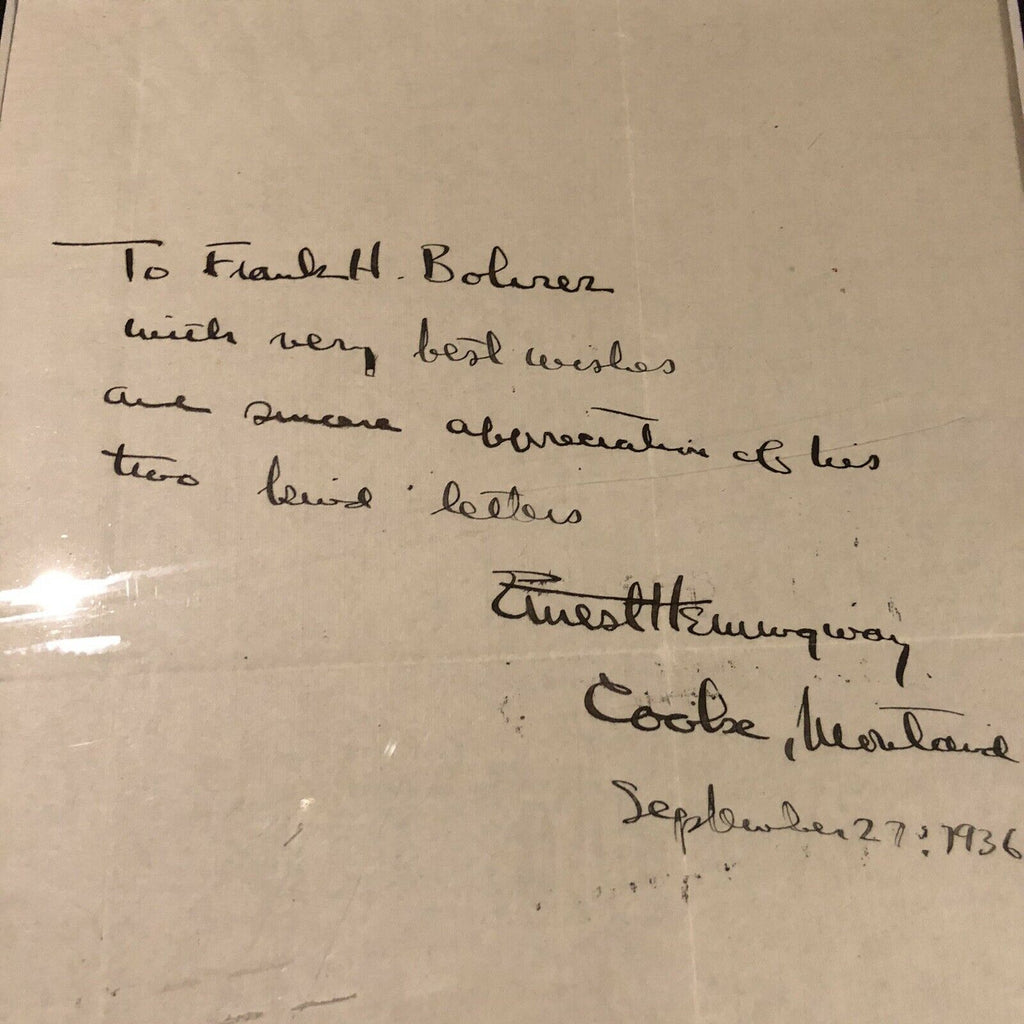 To Frank H. Bohrer
with very best wishes
and sincere appreciation of his
two kind letters
Ernest Hemingway
Cooke, Montana
September 27: 1936